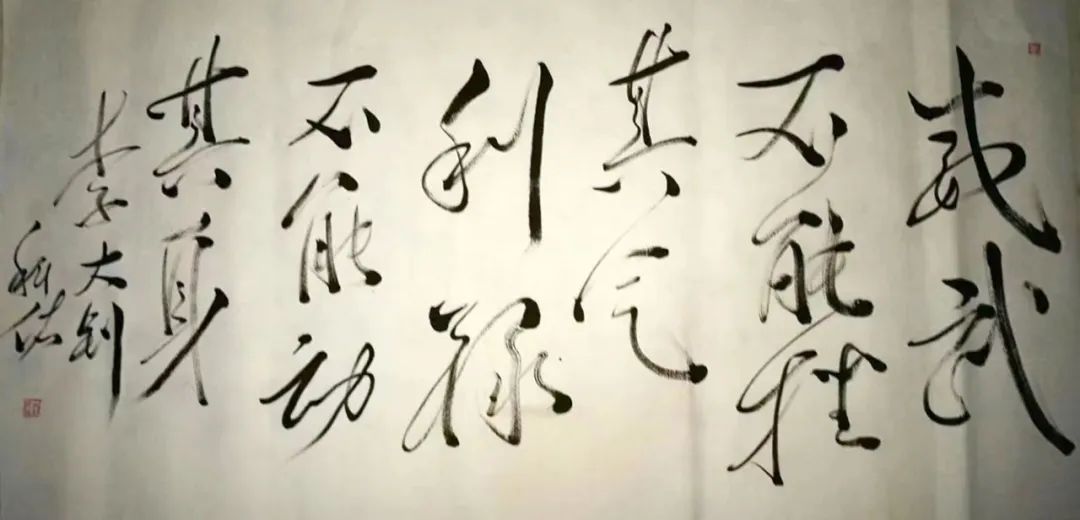 威武
不能挫
其气
利禄
不能动
其身
李大钊